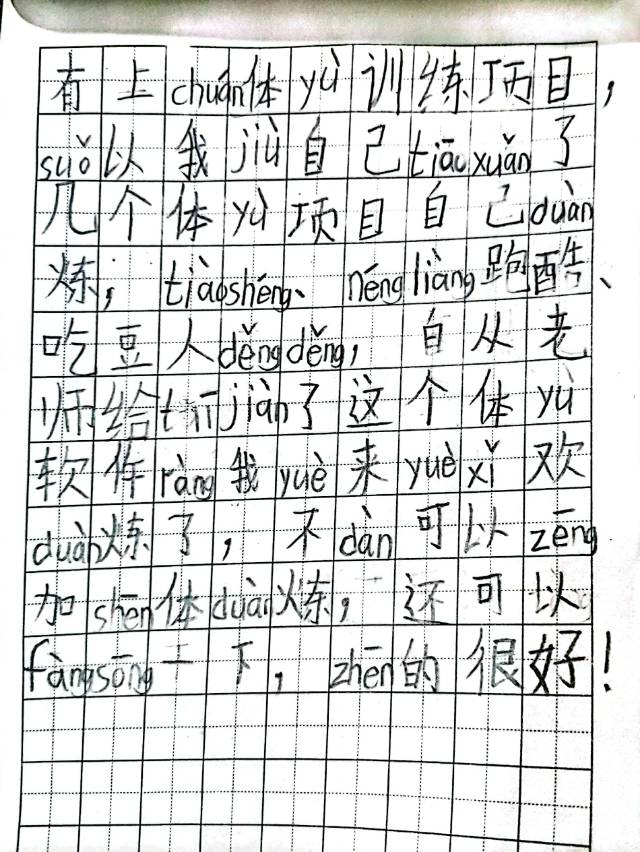 有上chuán体yù训练项目，
suǒ以我jiù自己tiāoxuǎn了
几个体yù项目自己duàn
炼，tiàoshéng、néngliàng跑酷、
吃豆人děngděng，自从老
师给tuījiàn了这个体yù
软件ràng我yuè来yuèxǐ欢
duàn炼了，不dàn可以zēng
加shēn体duàn炼，还可以
fàngsōng一下，zhēn的很好！